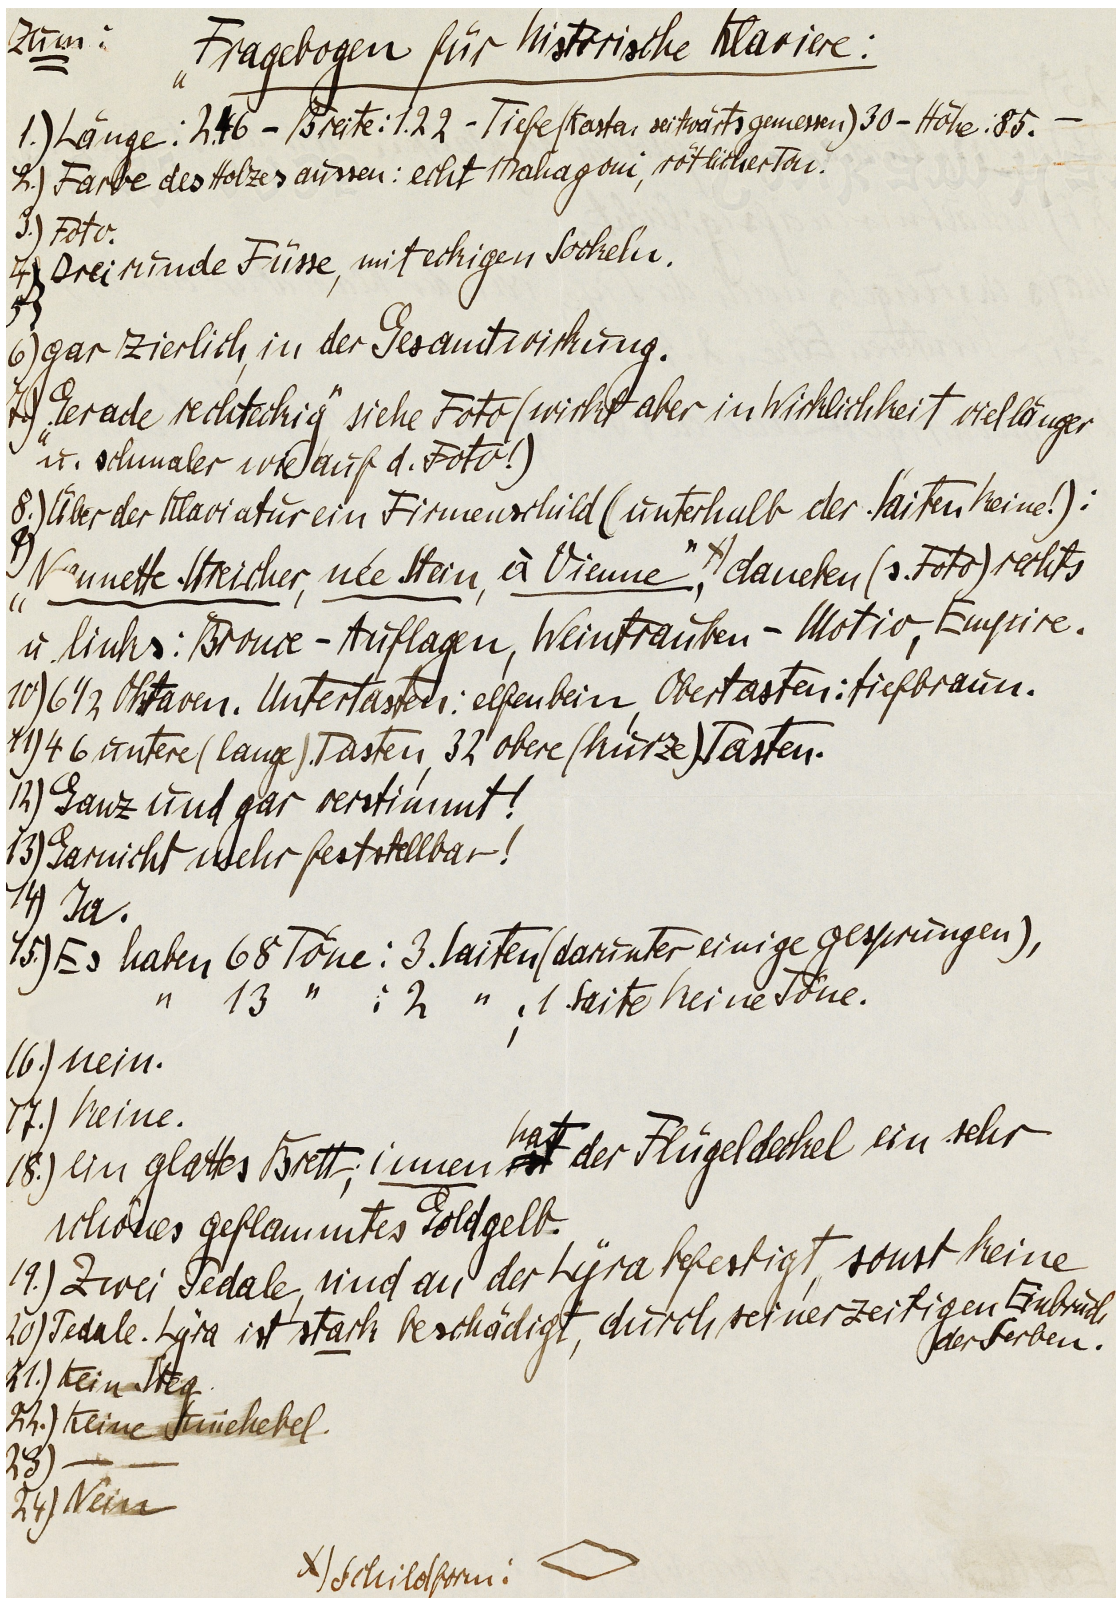 Zum:
„Fragebogen für historische Klaviere:
1.) Länge: 246 – Breite: 1.22 – Tiefe (Kasten seitwärts gemessen) 30 – Höhe: 85. —
2.) Farbe des Holzes aussen: echt Mahagoni, rötlicher Ton.
3.) Foto.
4.) Drei runde Füsse, mit eckigen Sockeln.
5)
6) gar zierlich, in der Gesamtwirkung.
7.) „Gerade rechteckig" siehe Foto (wirkt aber in Wirklichkeit viel länger
u. schmaler wie auf d. Foto!)
8.) Über der Klaviatur ein Firmenschild (unterhalb der Saiten keine!):
9)
„Nannette Streicher, née Stein, à Vienne", x) daneben (s. Foto) rechts
u. links: Bronce – Auflagen, Weintrauben – Motiv, Empire.
10) 6 1/2 Oktaven. Untertasten: elfenbein, Obertasten: tiefbraun.
11) 46 untere (lange) Tasten, 32 obere (kurze) Tasten.
12) Ganz und gar verstimmt!
13) Garnicht mehr feststellbar!
14) Ja.
15.) Es haben 68 Töne: 3 Saiten (darunter einige gesprungen),
" 13 " : 2 " ; 1 Saite keine Töne.
16.) nein.
17.) keine.
18.) ein glattes Brett; innen hat der Flügeldeckel ein sehr
schönes geflammtes Goldgelb.
19.) Zwei Pedale, sind an der Lÿra befestigt, sonst keine
20) Pedale. Lÿra ist stark beschädigt, durch seinerzeitigen Einbruch
der Serben.
21.) Kein Steg.
22.) Keine Kniehebel.
23) — —
24) Nein
x) Schildform: